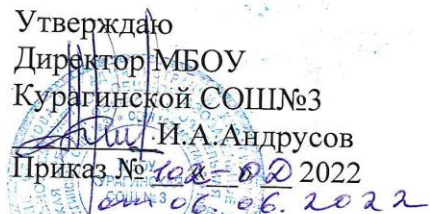 Утверждаю
Директор МБОУ
Курагинской СОШ№3
И.А.Андрусов
Приказ № 102-ОД 2022
от 06.06.2022